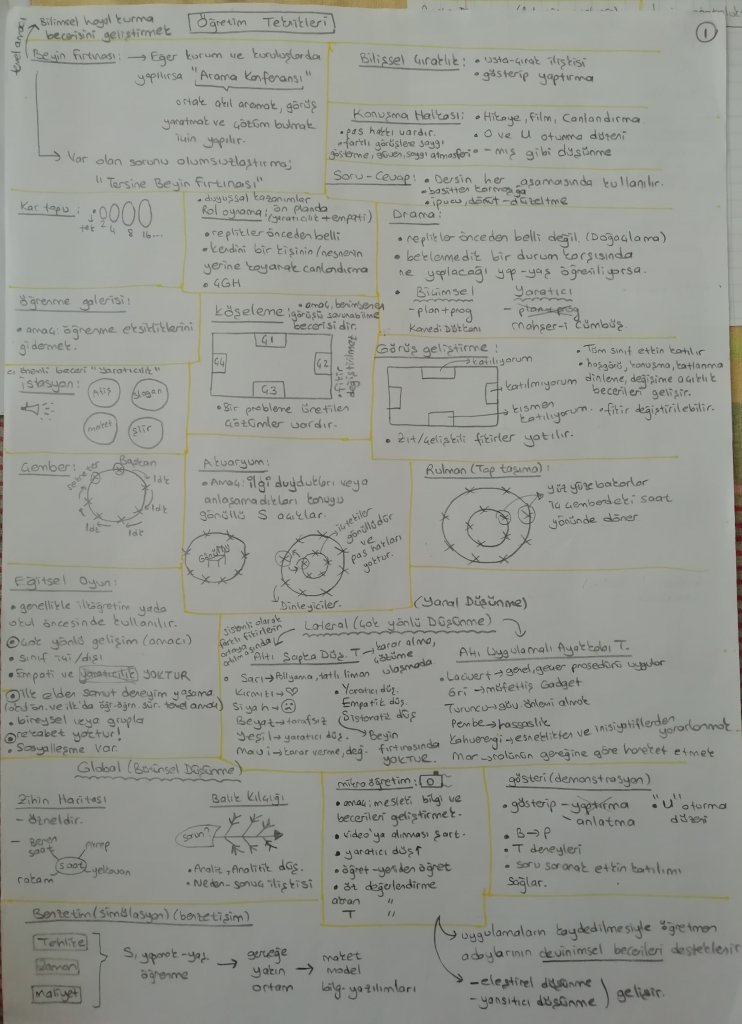 Bilimsel hayal kurma
becerisini geliştirmek
temel amacı
Öğretim Teknikleri
1
Beyin Fırtınası: → Eğer kurum ve kuruluşlarda
yapılırsa "Arama Konferansı"
ortak akıl aramak, görüş
yaratmak ve çözüm bulmak
için yapılır.
→ Var olan sorunu olumsuzlaştırma;
"Tersine Beyin Fırtınası"
Bilişsel Çıraklık: • usta-çırak ilişkisi
• gösterip yaptırma
Konuşma Halkası: • Hikaye, film, canlandırma
• pas hakkı vardır.
• farklı görüşlere saygı
gösterme, güven, saygı atmosferi
• O ve U oturma düzeni
• -mış gibi düşünme
Soru-Cevap: • Dersin her aşamasında kullanılır.
• basitten karmaşığa
• ipucu, dönüt-düzeltme
Kar topu:
tek 2 4 8 16...
• duyuşsal kazanımlar
ön planda
Rol oynama: (yaratıcılık + empati)
• replikler önceden belli
• kendini bir kişinin/nesnenin
yerine koyarak canlandırma
• 4GH
Drama:
• replikler önceden belli değil. (Doğaçlama)
• beklenmedik bir durum karşısında
ne yapılacağı yap-yaş öğreniliyorsa.
• Biçimsel
- plan+prog
Komedi Dükkanı
Yaratıcı
- plan+prog
mahşer-i cümbüş
Öğrenme galerisi:
• amaç: öğrenme eksikliklerini
gidermek.
Köşeleme: • amaç, benimsenen
görüşü savunabilme
becerisidir.
G1
G2
G3
G4
fikir
değiştirilmez
• Bir probleme üretilen
çözümler vardır.
Görüş geliştirme:
katılıyorum
katılmıyorum
kısmen
katılıyorum
• Tüm sınıf etkin katılır
• hoşgörü, konuşma, katlanma
dinleme, değişime açıklık
becerileri gelişir.
• fikir değiştirilebilir.
• Zıt/çelişkili fikirler yatılır.
en önemli beceri "yaratıcılık"
İstasyon:
Afiş
Slogan
maket
Şiir
Çember:
sekreter
Başkan
1dk
1dk
1dk
1dk
Akvaryum:
• Amaç: ilgi duydukları veya
anlaşamadıkları konuyu
gönüllü S açıklar.
Gönüllü
içtekiler
gönüllüdür
ve
pas hakları
yoktur.
Dinleyiciler.
Rulman (Top taşıma):
yüz yüze bakarlar
iç çemberdeki saat
yönünde döner
Eğitsel Oyun:
• genellikle ilköğretim yada
okul öncesinde kullanılır.
• Çok yönlü gelişim (amacı)
• sınıf içi/dışı
• Empati ve yaratıcılık YOKTUR
• ilk elden somut deneyim yaşama
• bireysel veya grupla
• rekabet yoktur!
• Sosyalleşme var.
(Yanal Düşünme)
Lateral (Çok yönlü Düşünme)
sistemli olarak
farklı fikirlerin
ortaya
atılmasında
Altı Şapka Düş. T → karar alma,
çözüme
ulaşmada
• Sarı → Pollyanna, tatlı liman
Kırmızı → ♡
Siyah → ☹
Beyaz → tarafsız
Yeşil → yaratıcı düş.
Mavi → karar verme, değ.
• Yaratıcı düş.
Empatik düş.
Sistematik düş
→ Beyin
fırtınasında
YOKTUR.
Altı Uygulamalı Ayakkabı T.
• Lacivert → genel, geçer prosedürü uygular
Gri → müfettiş Gadget
Turuncu → güv. önlemi almak
Pembe → hassaslık
Kahverengi → esneklikten ve inisiyatiflerden
yararlanmak.
Mor → rolünün gereğine göre hareket etmek
Global (Bütünsel Düşünme)
Zihin Haritası
- Özneldir.
saat
Akrep
yelkovan
rakam
Balık Kılçığı
sorun?
• Analiz, Analitik düş.
• Neden-sonuç ilişkisi
mikro öğretim:
• amaç: mesleki bilgi ve
becerileri geliştirmek.
• video'ya alınması şart.
• yaratıcı düş↑
• öğret-yeniden öğret
• öz değerlendirme
akran "
T "
gösteri (demonstrasyon)
• gösterip -yaptırma
-anlatma
• "U" oturma
düzeni
• B→P
• T deneyleri
• soru sorarak etkin katılımı
sağlar.
Benzetim (simülasyon) (benzetişim)
Tehlike
Zaman
Maliyet
S, yaparak-yaş.
öğrenme
→ gerçeğe
yakın
ortam
→ maket
model
bilg. yazılımları
→ uygulamaların kaydedilmesiyle öğretmen
adaylarının devinimsel becerileri desteklenir
→ -eleştirel düşünme
-yansıtıcı düşünme
gelişir.